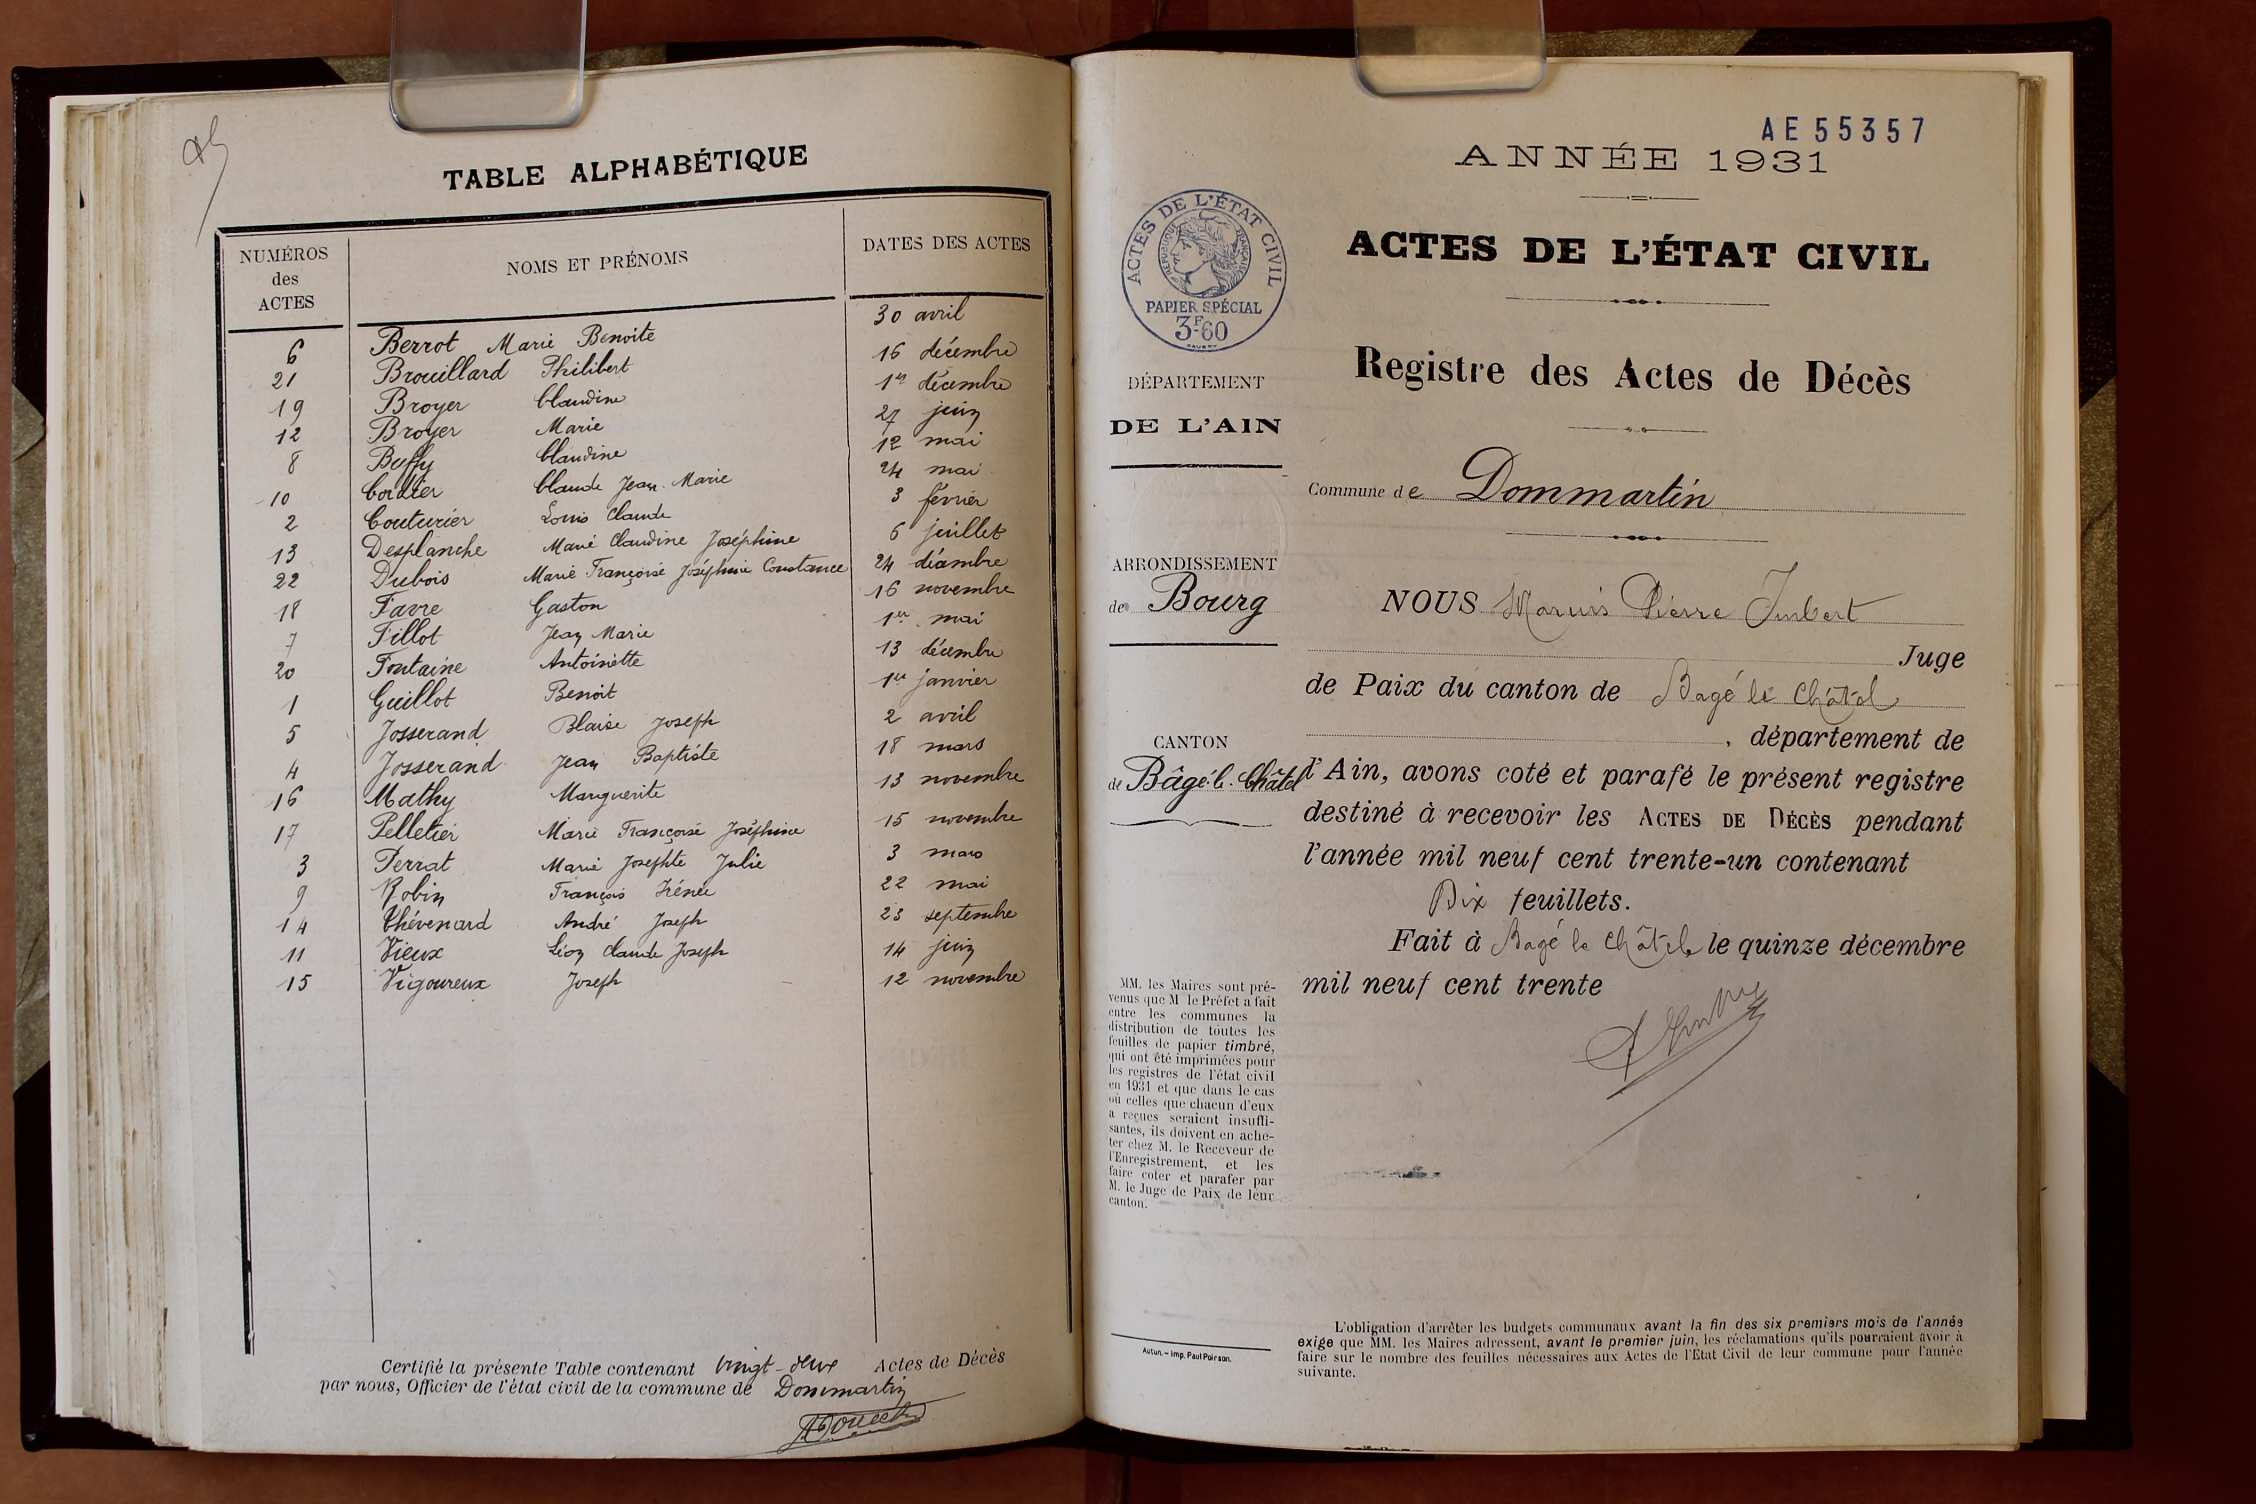 TABLE ALPHABÉTIQUE
NUMÉROS des ACTES NOMS ET PRÉNOMS DATES DES ACTES
6 Berrot Marie Benoite 30 avril
21 Brouillard Philibert 16 décembre
19 Broyer Claudine 1er décembre
12 Broyer Marie 27 juin
8 Buffy Claudine 12 mai
10 Cordier Claude Jean Marie 24 mai
2 Couturier Louis Claude 3 février
13 Desplanche Marie Claudine Joséphine 6 juillet
22 Dubois Marie Françoise Joséphine Constance 24 décembre
18 Favre Gaston 16 novembre
7 Fillot Jean Marie 1er mai
20 Fontaine Antoinette 13 décembre
1 Guillot Benoit 1er janvier
5 Josserand Blaise Joseph 2 avril
4 Josserand Jean Baptiste 18 mars
16 Mathy Marguerite 13 novembre
17 Pelletier Marie Françoise Joséphine 15 novembre
3 Perrat Marie Josephte Julie 3 mars
9 Robin François Irénée 22 mai
14 Thévenard André Joseph 23 septembre
11 Vieux Léon Claude Joseph 14 juin
15 Vigoureux Joseph 12 novembre
Certifié la présente Table contenant vingt-deux Actes de Décès
par nous, Officier de l'état civil de la commune de Dommartin
AE 55357
ANNÉE 1931
ACTES DE L'ÉTAT CIVIL
RÉPUBLIQUE FRANÇAISE
PAPIER SPÉCIAL
3F60
ACTES DE L'ÉTAT CIVIL
Registre des Actes de Décès
DÉPARTEMENT
DE L'AIN
Commune de Dommartin
ARRONDISSEMENT
de Bourg
NOUS Marius Pierre Imbert
Juge
de Paix du canton de Bagé le Châtel
, département de
CANTON
de Bâgé-l-Châtel
l'Ain, avons coté et parafé le présent registre
destiné à recevoir les ACTES DE DÉCÈS pendant
l'année mil neuf cent trente-un contenant
Dix feuillets.
Fait à Bagé le Châtel le quinze décembre
mil neuf cent trente
MM. les Maires sont pré-
venus que M le Préfet a fait
entre les communes la
distribution de toutes les
feuilles de papier timbré,
qui ont été imprimées pour
les registres de l'état civil
en 1931 et que dans le cas
où celles que chacun d'eux
a reçues seraient insuffi-
santes, ils doivent en ache-
ter chez M. le Receveur de
l'Enregistrement, et les
faire coter et parafer par
M. le Juge de Paix de leur
canton.
Autun. – Imp. Paul Poirson.
L'obligation d'arrêter les budgets communaux avant la fin des six premiers mois de l'année
exige que MM. les Maires adressent, avant le premier juin, les réclamations qu'ils pourraient avoir à
faire sur le nombre des feuilles nécessaires aux Actes de l'Etat Civil de leur commune pour l'année
suivante.